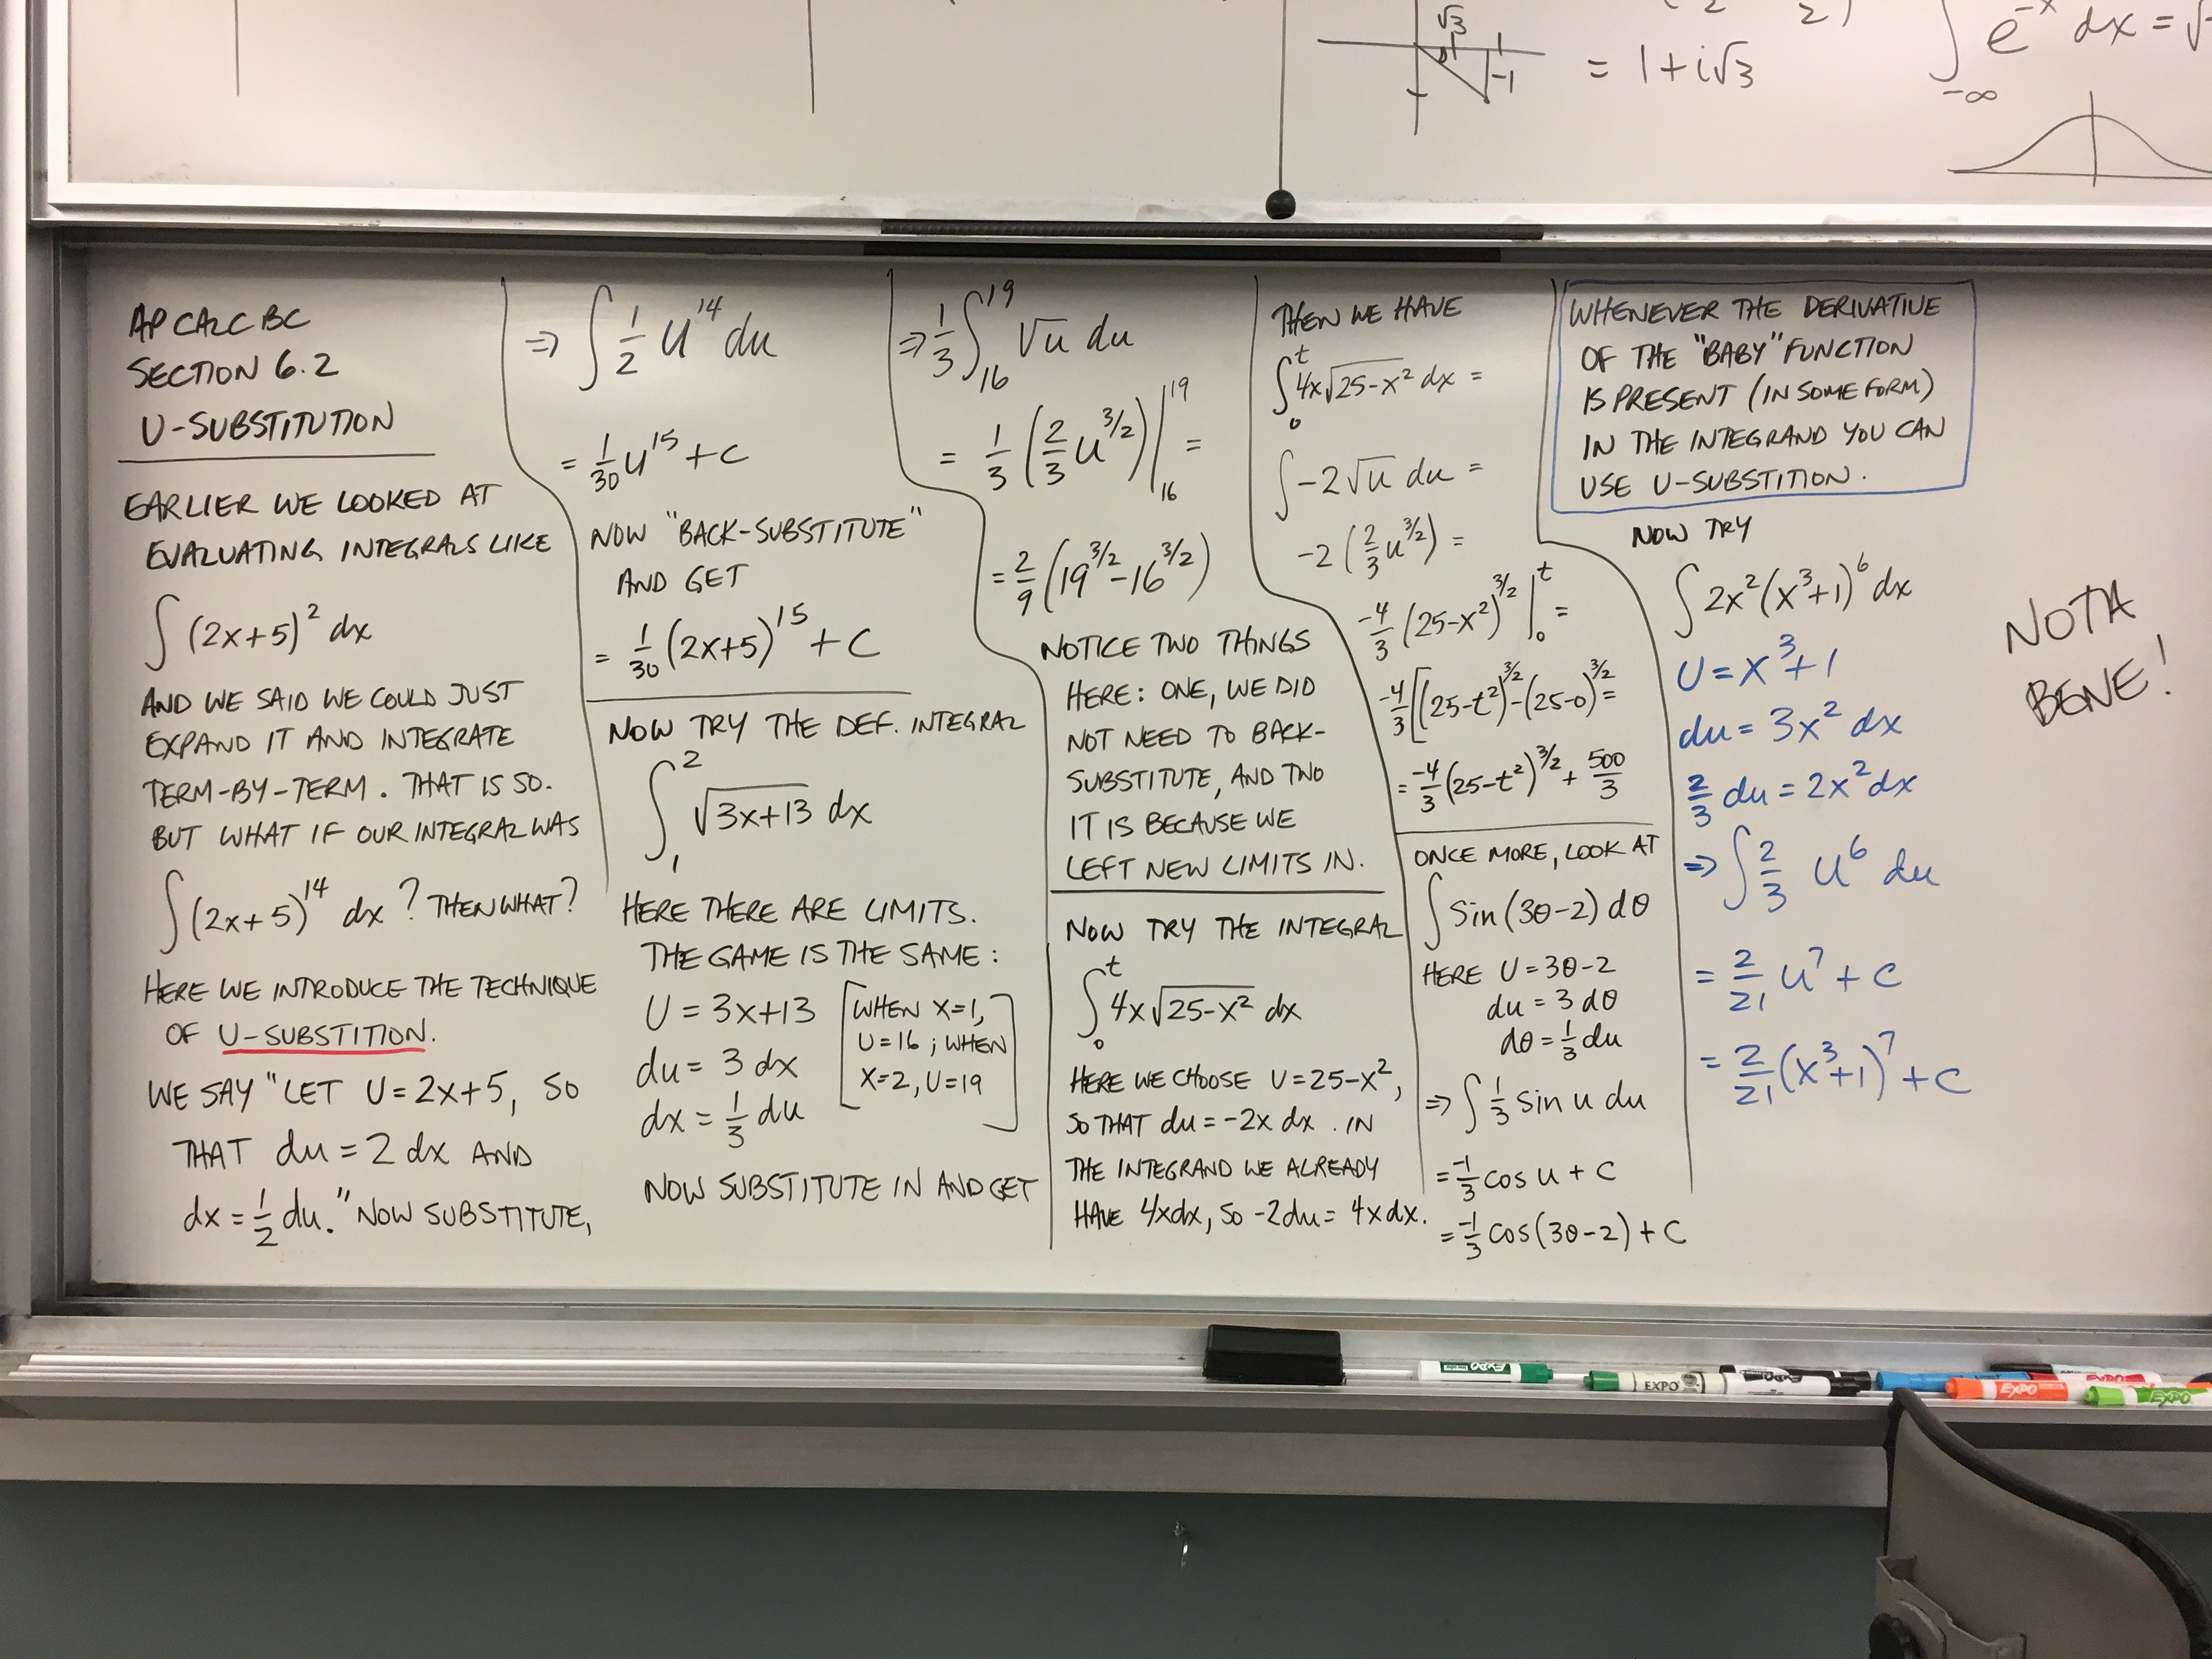 √3
1
1
-1
= 1+i√3
2 2)
∫ e^-x dx = √
-∞
AP CALC BC
SECTION 6.2
U-SUBSTITUTION
EARLIER WE LOOKED AT
EVALUATING INTEGRALS LIKE
∫ (2x+5)² dx
AND WE SAID WE COULD JUST
EXPAND IT AND INTEGRATE
TERM-BY-TERM. THAT IS SO.
BUT WHAT IF OUR INTEGRAL WAS
∫ (2x+5)^14 dx ? THEN WHAT?
HERE WE INTRODUCE THE TECHNIQUE
OF U-SUBSTITION.
WE SAY "LET U=2x+5, SO
THAT du = 2 dx AND
dx = 1/2 du." NOW SUBSTITUTE,
⇒ ∫ 1/2 u^14 du
= 1/30 u^15 + C
NOW "BACK-SUBSTITUTE"
AND GET
= 1/30 (2x+5)^15 + C
NOW TRY THE DEF. INTEGRAL
∫₁² √(3x+13) dx
HERE THERE ARE LIMITS.
THE GAME IS THE SAME:
U = 3x+13
du = 3 dx
dx = 1/3 du
[WHEN X=1,
U=16; WHEN
X=2, U=19]
NOW SUBSTITUTE IN AND GET
⇒ 1/3 ∫₁₆¹⁹ √u du
= 1/3 (2/3 u^3/2) |₁₆¹⁹ =
= 2/9 (19^3/2 - 16^3/2)
NOTICE TWO THINGS
HERE: ONE, WE DID
NOT NEED TO BACK-
SUBSTITUTE, AND TWO
IT IS BECAUSE WE
LEFT NEW LIMITS IN.
NOW TRY THE INTEGRAL
∫₀ᵗ 4x√(25-x²) dx
HERE WE CHOOSE U=25-x²,
SO THAT du = -2x dx. IN
THE INTEGRAND WE ALREADY
HAVE 4xdx, SO -2du = 4xdx.
THEN WE HAVE
∫₀ᵗ 4x√(25-x²) dx =
∫ -2√u du =
-2 (2/3 u^3/2) =
-4/3 (25-x²)^3/2 |₀ᵗ =
-4/3 [(25-t²)^3/2 - (25-0)^3/2 =
= -4/3 (25-t²)^3/2 + 500/3
ONCE MORE, LOOK AT
∫ sin(3θ-2) dθ
HERE U = 3θ-2
du = 3 dθ
dθ = 1/3 du
⇒ ∫ 1/3 sin u du
= -1/3 cos u + C
= -1/3 cos(3θ-2) + C
WHENEVER THE DERIVATIVE
OF THE "BABY" FUNCTION
IS PRESENT (IN SOME FORM)
IN THE INTEGRAND YOU CAN
USE U-SUBSTITION.
NOW TRY
∫ 2x²(x³+1)⁶ dx
U = x³+1
du = 3x² dx
2/3 du = 2x² dx
⇒ ∫ 2/3 u⁶ du
= 2/21 u⁷ + C
= 2/21 (x³+1)⁷ + C
NOTA
BENE!
EXPO
EXPO
EXPO
EXPO
EXPO